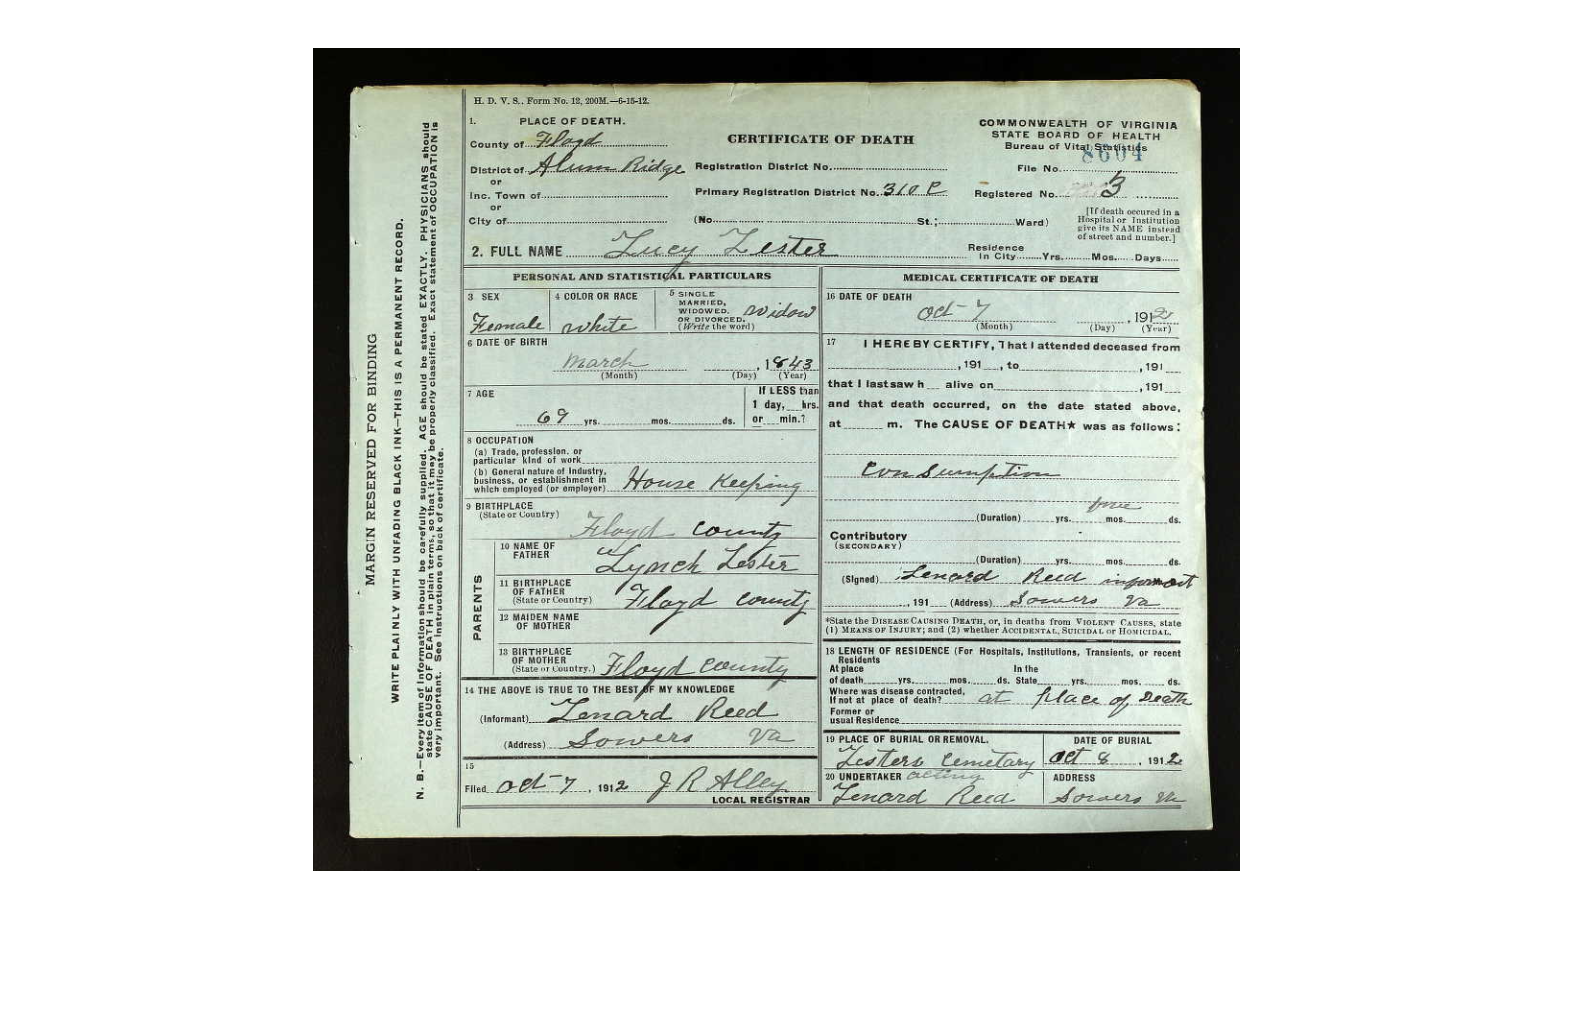 H. D. V. S., Form No. 12, 200M.—6-15-12.
1. PLACE OF DEATH.
County of Floyd
District of Alum Ridge
or
Inc. Town of
or
City of
CERTIFICATE OF DEATH
Registration District No.
Primary Registration District No. 310 C
(No. St.; Ward)
COMMONWEALTH OF VIRGINIA
STATE BOARD OF HEALTH
Bureau of Vital Statistics
8604
File No.
Registered No. 3
[If death occured in a
Hospital or Institution
give its NAME instead
of street and number.]
2. FULL NAME Lucy Lester
Residence
In City Yrs. Mos. Days
PERSONAL AND STATISTICAL PARTICULARS
3 SEX
Female
4 COLOR OR RACE
White
5 SINGLE
MARRIED,
WIDOWED,
OR DIVORCED.
(Write the word)
Widow
6 DATE OF BIRTH
March , 1843
(Month) (Day) (Year)
7 AGE
69 yrs. mos. ds.
If LESS than
1 day, hrs.
or min.?
8 OCCUPATION
(a) Trade, profession, or
particular kind of work
(b) General nature of Industry,
business, or establishment in
which employed (or employer) House Keeping
9 BIRTHPLACE
(State or Country) Floyd county
PARENTS
10 NAME OF
FATHER Lynch Lester
11 BIRTHPLACE
OF FATHER
(State or Country) Floyd county
12 MAIDEN NAME
OF MOTHER
13 BIRTHPLACE
OF MOTHER
(State or Country.) Floyd county
14 THE ABOVE IS TRUE TO THE BEST OF MY KNOWLEDGE
(Informant) Lenard Reed
(Address) Sowers Va
15
Filed Oct-7, 1912 J R Alley
LOCAL REGISTRAR
MEDICAL CERTIFICATE OF DEATH
16 DATE OF DEATH
Oct-7 , 1912
(Month) (Day) (Year)
17 I HEREBY CERTIFY, That I attended deceased from
, 191 , to , 191
that I last saw h alive on , 191
and that death occurred, on the date stated above,
at m. The CAUSE OF DEATH★ was as follows:
Consumption
(Duration) yrs. mos. ds.
Contributory
(SECONDARY)
(Duration) yrs. mos. ds.
(Signed) Lenard Reed informant
, 191 (Address) Sowers Va
*State the DISEASE CAUSING DEATH, or, in deaths from VIOLENT CAUSES, state
(1) MEANS OF INJURY; and (2) whether ACCIDENTAL, SUICIDAL or HOMICIDAL.
18 LENGTH OF RESIDENCE (For Hospitals, Institutions, Transients, or recent
Residents
At place In the
of death yrs. mos. ds. State yrs. mos. ds.
Where was disease contracted,
If not at place of death? at place of Death
Former or
usual Residence
19 PLACE OF BURIAL OR REMOVAL.
Lesters Cemetary
DATE OF BURIAL
Oct 8, 1912
20 UNDERTAKER acting
Lenard Reed
ADDRESS
Sowers Va
MARGIN RESERVED FOR BINDING
WRITE PLAINLY WITH UNFADING BLACK INK—THIS IS A PERMANENT RECORD.
N. B.—Every item of information should be carefully supplied. AGE should be stated EXACTLY. PHYSICIANS should
state CAUSE OF DEATH in plain terms, so that it may be properly classified. Exact statement of OCCUPATION is
very important. See instructions on back of certificate.